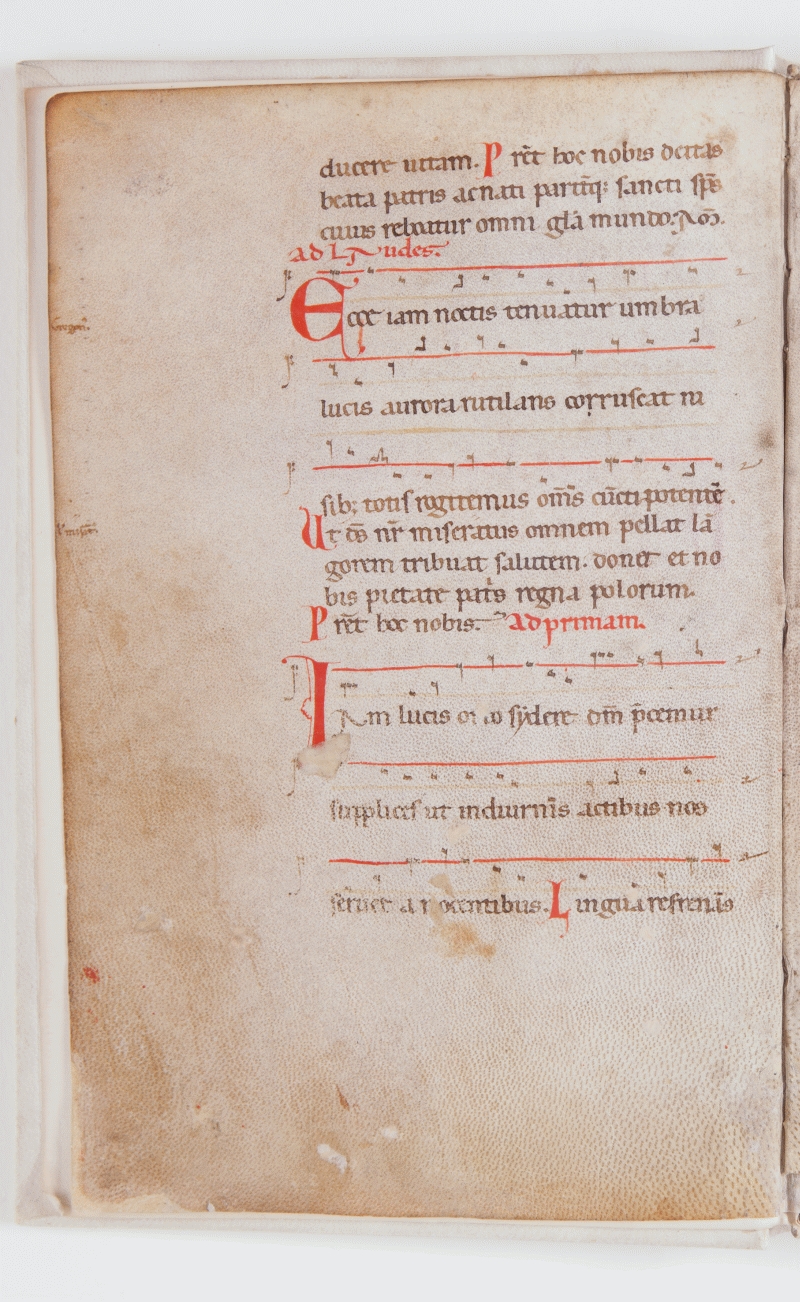 ducere uitam. P rēt hoc nobis deitas
beata patris ac nati pariƭq; sancti spē
cuius reboatur omni glā mundo. Am̄.
ad Laudes.
Ecce iam noctis tenuatur umbra
lucis aurora rutilans corruscat ni
sib; totis rogitemus om̄s cūctipotentē.
Ut ds̄ nr̄ miseratus omnem pellat lā
gorem tribuat salutem. donet et no
bis pietate pat̄s regna polorum.
P rēt hoc nobis. Ad primam.
Iam lucis or to sydere dm̄ p̄cemur
supplices ut in diurnis actibus nos
seruet a nocentibus. Linguā refrenās